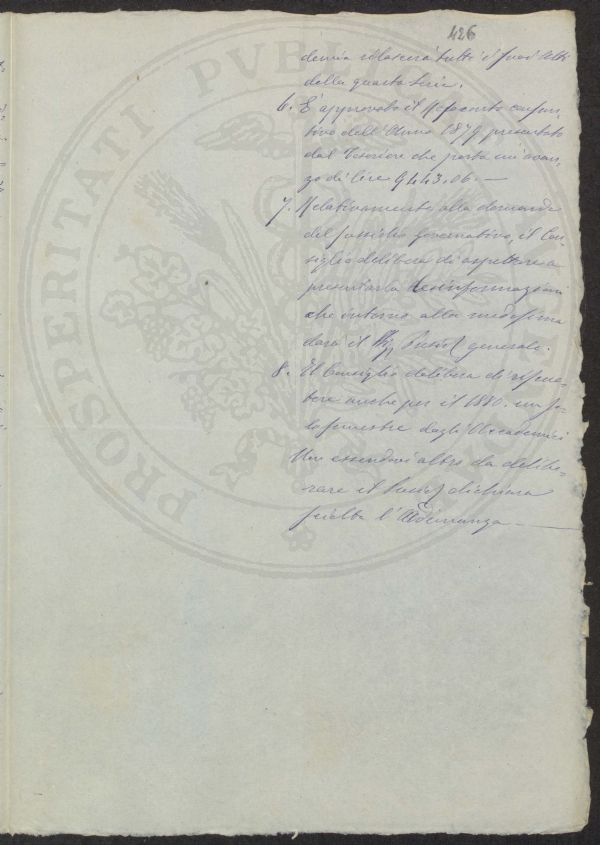 426
demia rilascerà tutti i suoi Atti
della quarta Serie.
6. È approvato il Resoconto consun-
tivo dell'Anno 1879 presentato
dal Tesoriere che porta un avan-
zo di lire 9443.06. —
7. Relativamente alla domanda
del sussidio governativo, il Con-
siglio delibera di aspettare a
presentarla le informazioni
che intorno alla medesima
darà il generale.
8. Il Consiglio delibera di riscuo-
tere anche per il 1880. un so-
lo semestre dagli Accademici
Non essendovi altro da delibe-
rare il dichiara
sciolta l'Adunanza —
PROSPERITATI PVBL